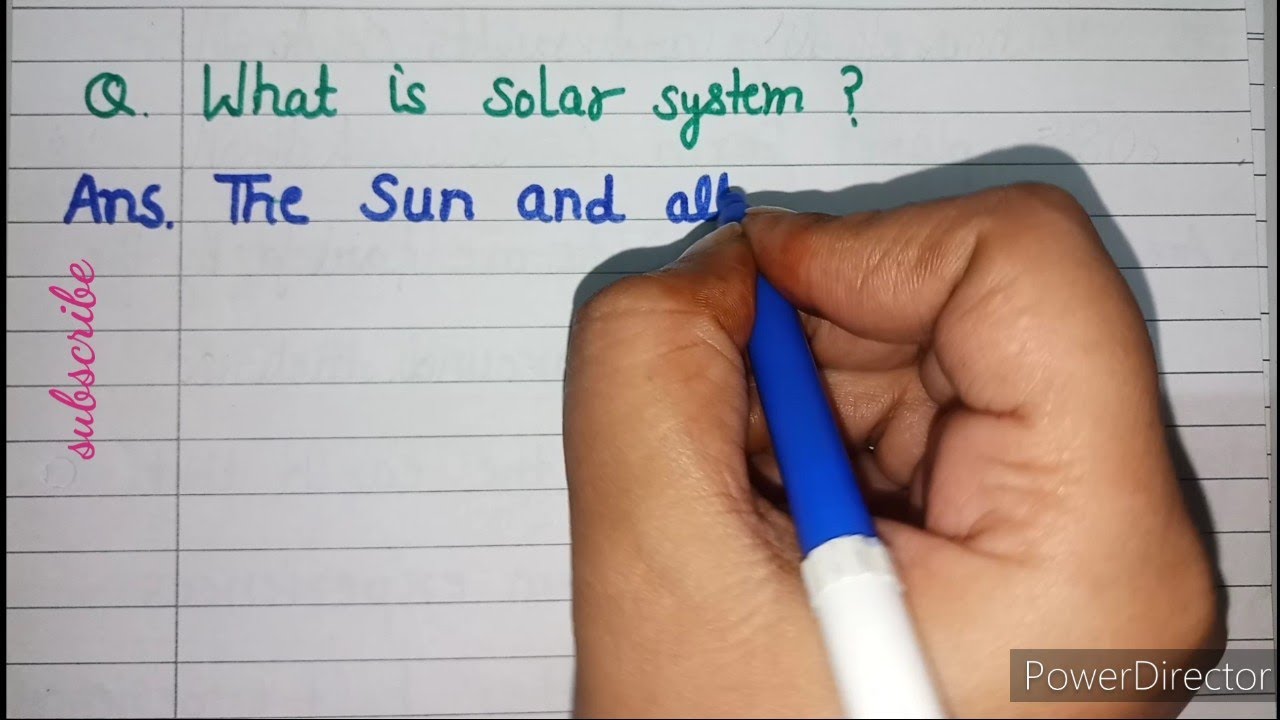 Q. What is solar system ?
Ans. The Sun and all
subscribe
PowerDirector